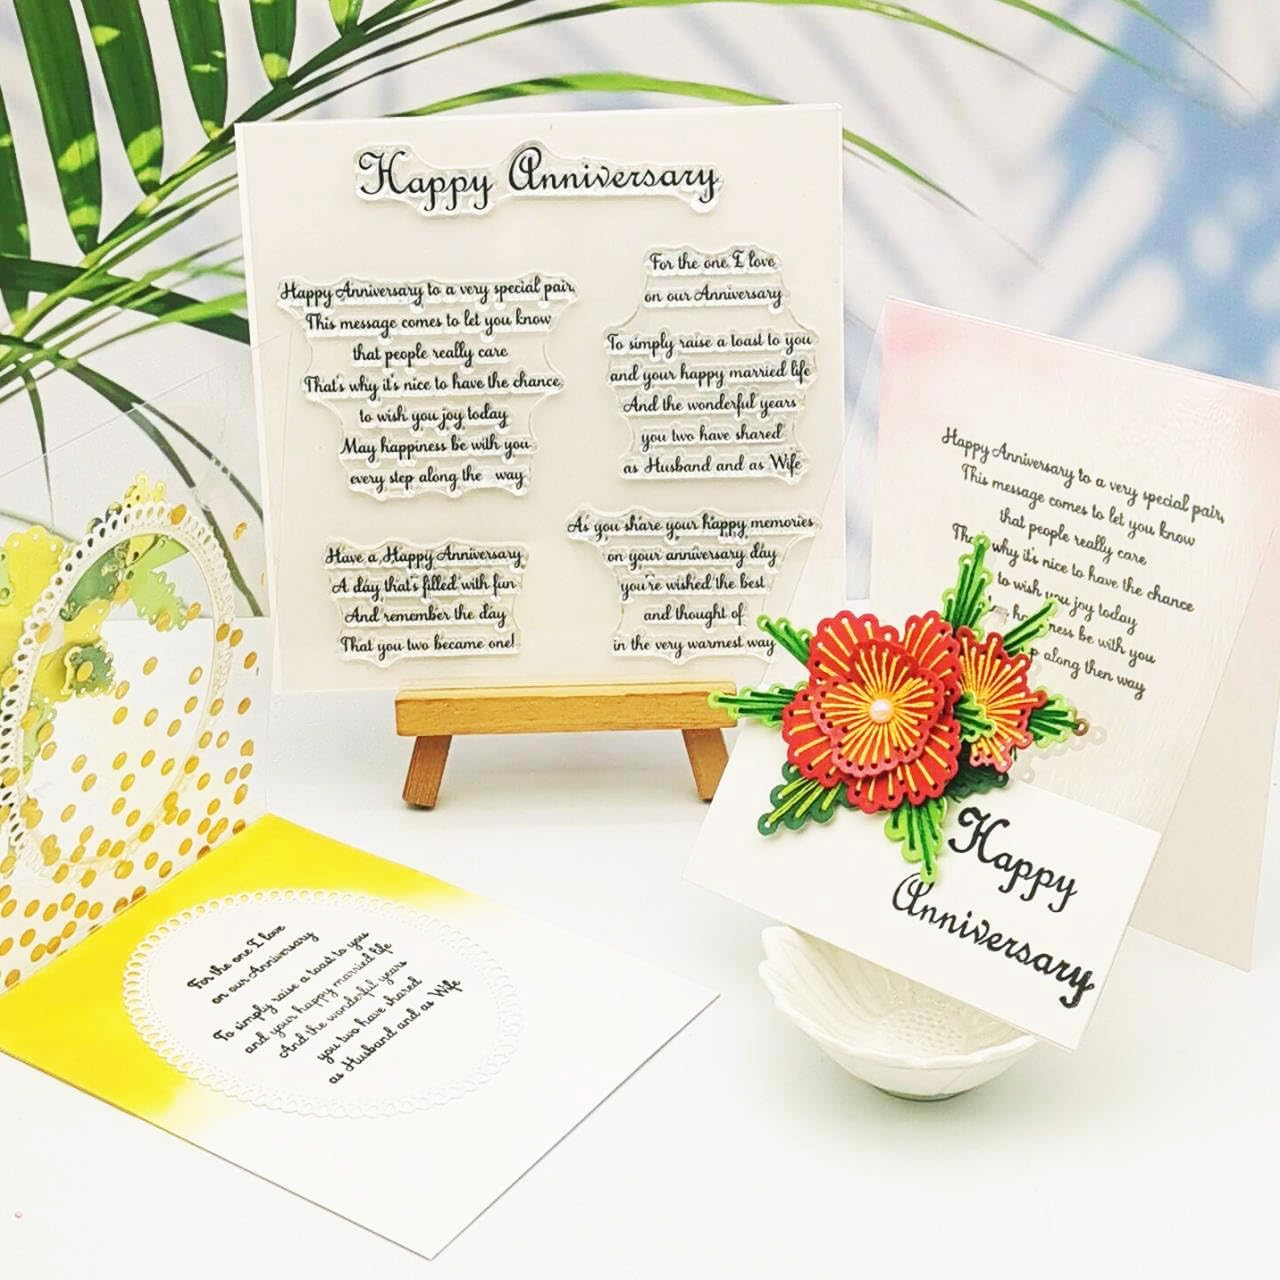 Happy Anniversary
Happy Anniversary to a very special pair,
This message comes to let you know
that people really care
That's why it's nice to have the chance
to wish you joy today
May happiness be with you
every step along the way
For the one I love
on our Anniversary
To simply raise a toast to you
and your happy married life
And the wonderful years
you two have shared
as Husband and as Wife
Have a Happy Anniversary
A day that's filled with fun
And remember the day
That you two became one!
As you share your happy memories
on your anniversary day
you're wished the best
and thought of
in the very warmest way
Happy Anniversary to a very special pair,
This message comes to let you know
that people really care
why it's nice to have the chance
to wish you joy today
be with you
along then way
Happy
Anniversary
For the one I love
on our Anniversary
To simply raise a toast to you
and your happy married life
And the wonderful years
you two have shared
as Husband and as Wife